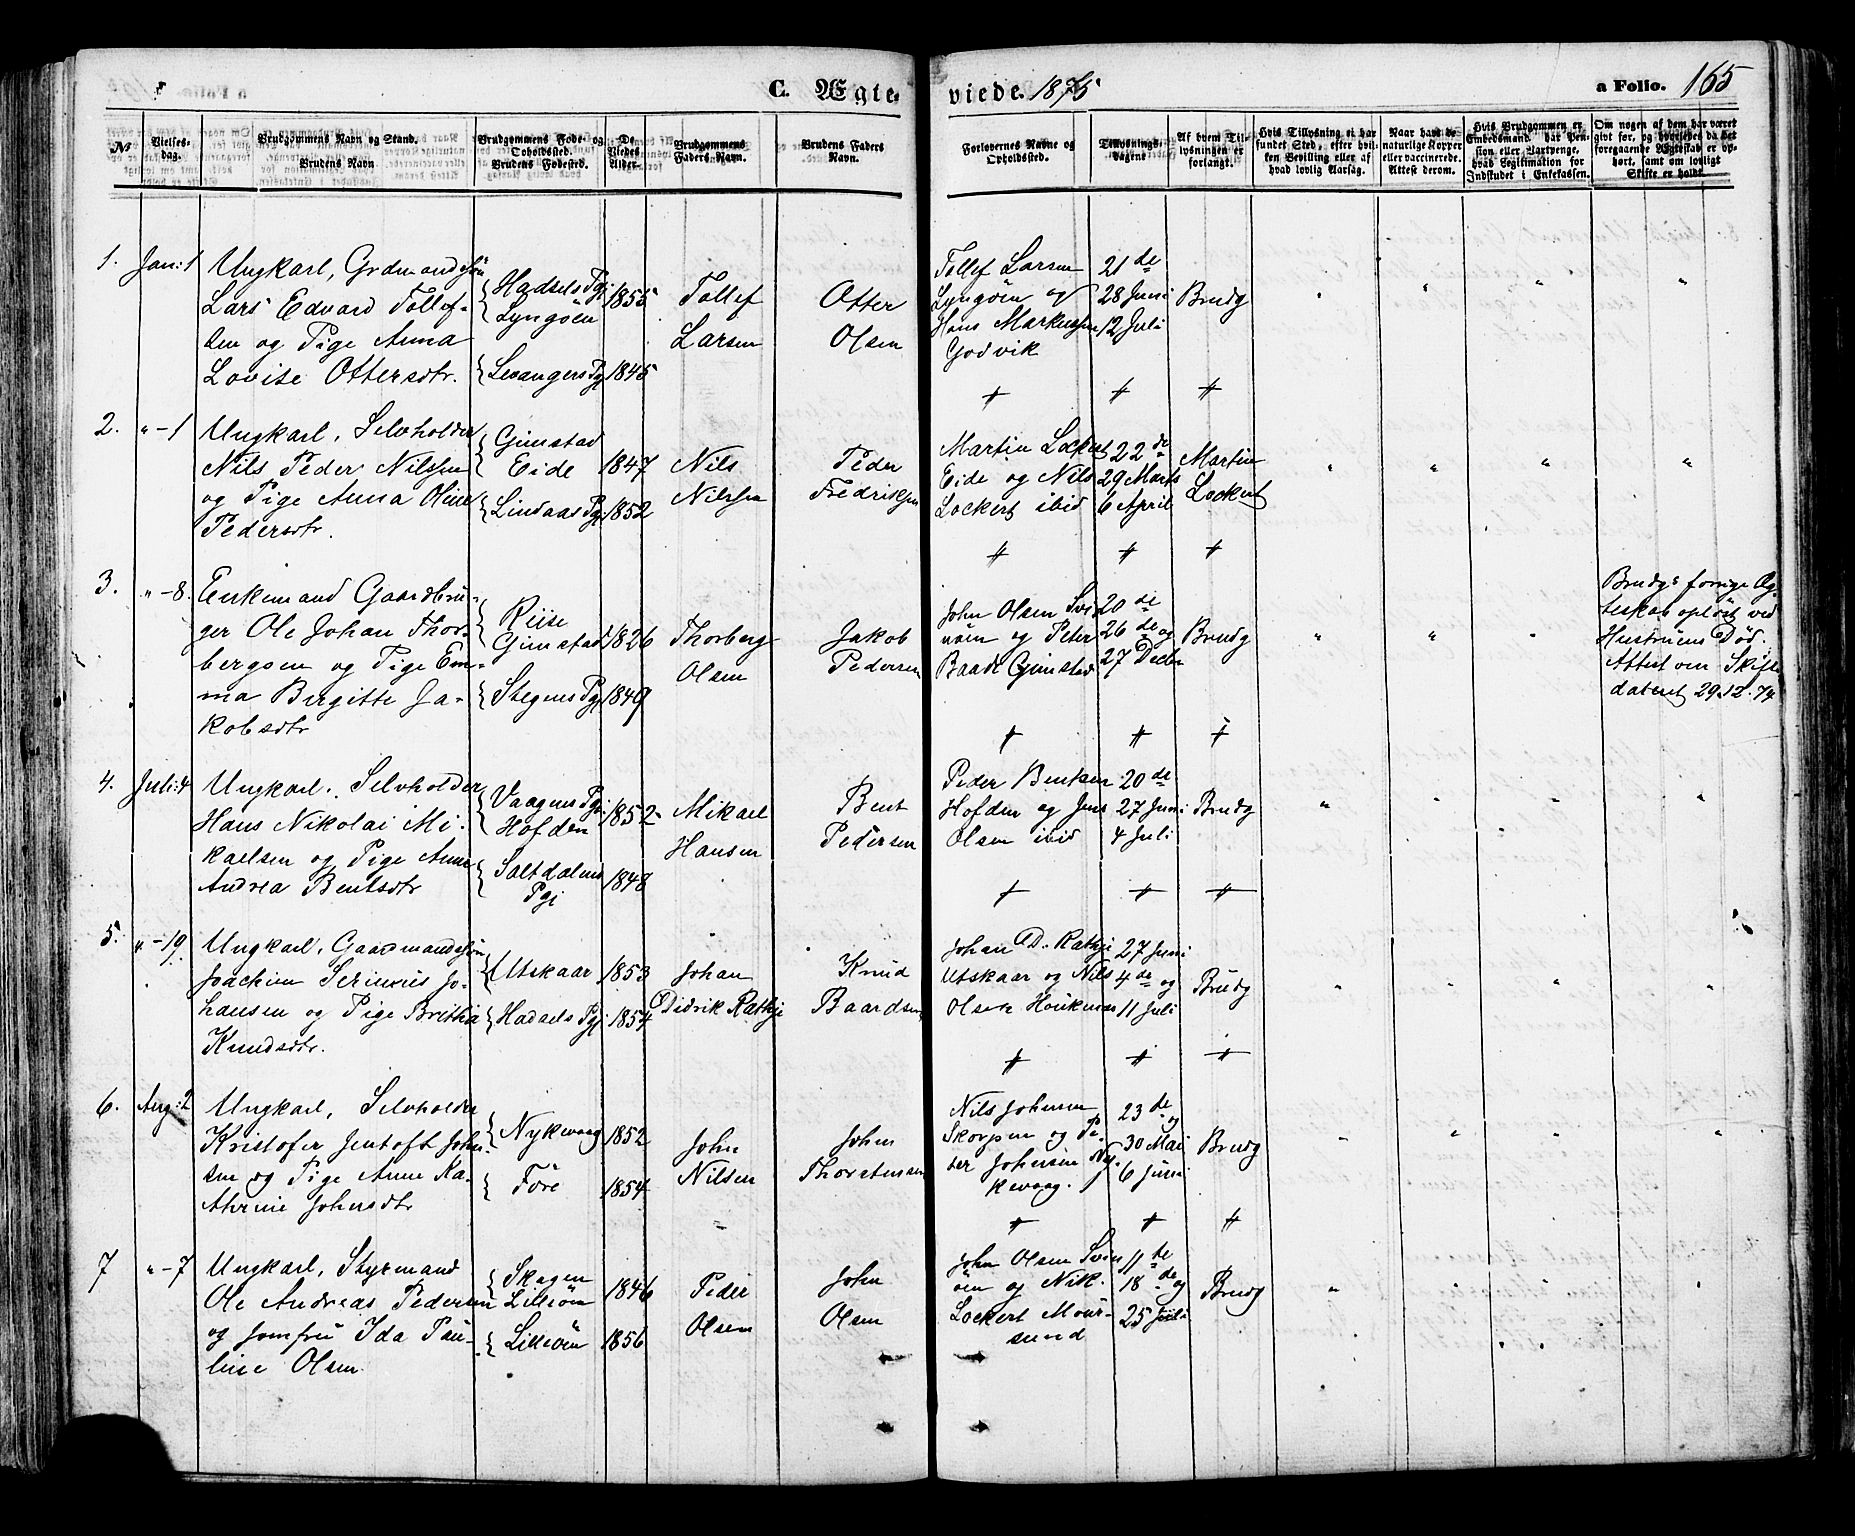 C. Ægte-
viede. 1875
a Folio. 165
№
Vielses-
dag.
Brudgommens Navn og Stand.
Brudens Navn
Brudgommens Føde- og
Opholdssted.
Brudens Fødested.
De
Viedes
Alder.
Brudgommens
Faders Navn.
Brudens Faders
Navn.
Forlovernes Navne og
Opholdssted.
Tillysnings-
dagene
Af hvem Til-
lysningen er
forlangt.
Hvis Tillysning ei har
fundet Sted, efter hvil-
ken Bevilling eller af
hvad lovlig Aarsag.
Naar havt de
naturlige Kopper
eller vaccinerede.
Attest derom.
Hvis Brudgommen er
Embedsmand, har Pen-
sion eller Vartpenge,
hvad Legitimation for
Indskudet i Enkekassen.
Om nogen af dem har været
gift før, og hvorledes da det
foregaaende Ægteskab er op-
hørt, samt om lovligt
Skifte er holdt.
1. Jan: 1 Ungkarl, Grdmandssøn
Lars Edvard Tollef-
sen og Pige Anna
Lovise Ottersdtr.
Hadsels Pgj
Lyngöen 1855
Levangers Pgj 1845
Tollef
Larsen
Otter
Olsen
Tollef Larsen
Lyngöen og
Hans Markussen
Godvik
21de
28 Juni
12 Juli
Brudg
2. " - 1 Ungkarl, Selvholder
Nils Peder Nilssen
og Pige Anna Oline
Pedersdtr.
Gimstad
Eide 1847
Lindaas Pgj 1852
Nils
Nilssen
Peder
Fredriksen
Martin Lockert
Eide og Nils
Lockert ibid
22de
29 Marts
6 April
Martin
Lockert
3. " - 8. Enkemand Gaardbru-
ger Ole Johan Thor-
bergsen og Pige Em-
ma Birgitte Ja-
kobsdtr
Riise
Gimstad 1826
Stegens Pgj 1849
Thorberg
Olsen
Jakob
Pedersen
John Olsen Svi
nöen og Peter
Baade Gimstad
20de
26de og
27 Decbr
Brudg
Brudgs forrige Æg-
teskab oplöst ved
Hustruens Död.
Attest om Skifte
dateret 29.12.74
4. Juli: 4 Ungkarl, Selvholder
Hans Nikolai Mi-
kaelsen og Pige Anne
Andrea Bentsdtr
Vaagens Pgj.
Hofden 1852
Saltdalens
Pgj 1848
Mikael
Hansen
Bent
Pedersen
Peder Bentsen
Hofden og Jens
Olsen ibid
20de
27 Juni
4 Juli
Brudg
5. " - 19 Ungkarl, Gaardmandssøn
Joachim Serinius Jo-
hansen og Pige Britha
Knudsdtr.
Utskaar 1853
Hadsels Pgj 1854
Johan
Didrik Rathje
Knud
Baardsen
Johan D. Rathje
Utskaar og Nils
Olsen
27 Juni
4de og
11 Juli
Brudg
6. Aug: 2 Ungkarl, Selvholder
Kristofer Jentoft John-
sen og Pige Anne Ka-
thrine Johnsdtr
Nykvaag 1852
Före 1854
John
Nilsen
John
Thorstensen
Nils Johnsen
Skorpen og Pe-
der Johnsen Ny-
kvaag.
23de og
30 Mai
6 Juni
Brudg
7 " - 7 Ungkarl, Styrmand
Ole Andreas Pedersen
og Jomfru Ida Pau-
line Olsen
Skagen
Lilleöen 1846
Lilleöen 1856
Peder
Olsen
John
Olsen
John Olsen Svin
öen og Nik.
Lockert Mour-
sund
11te
18de og
25 Juli
Brudg